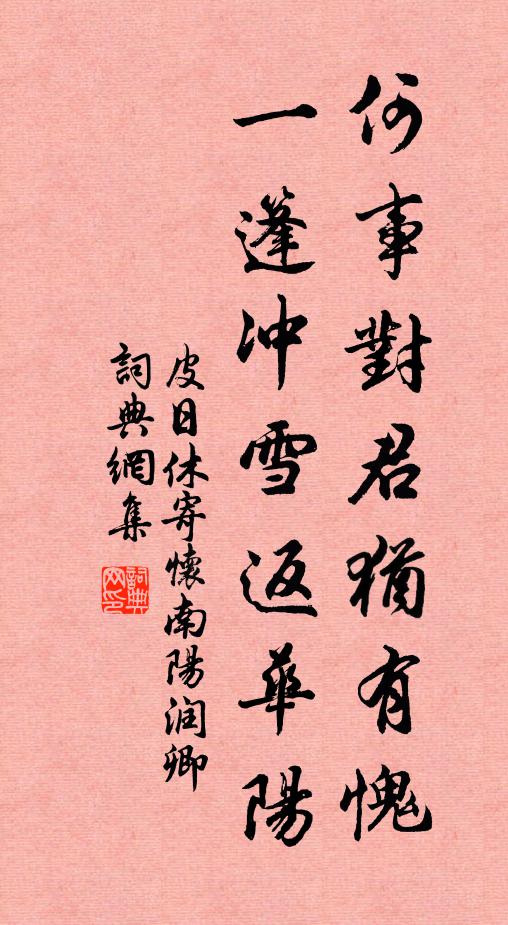 何事對君猶有愧
一篷冲雪返華陽
皮日休寄懷南陽润卿
詞典網集
詞典
网印